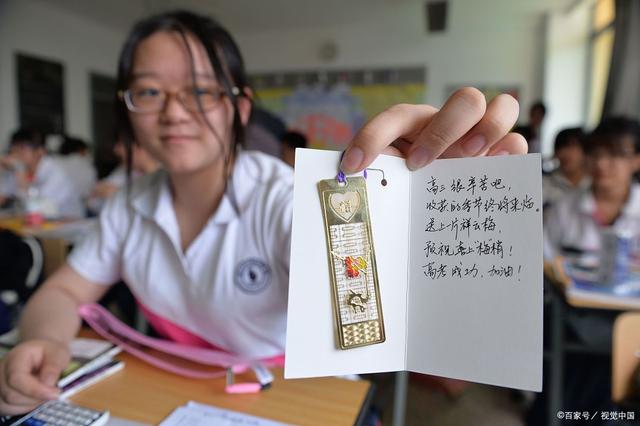 高三很辛苦吧,
收获的季节终将来临。
送上一片祥云梅,
预祝喜上梅梢!
高考成功、加油!
©百家号/视觉中国